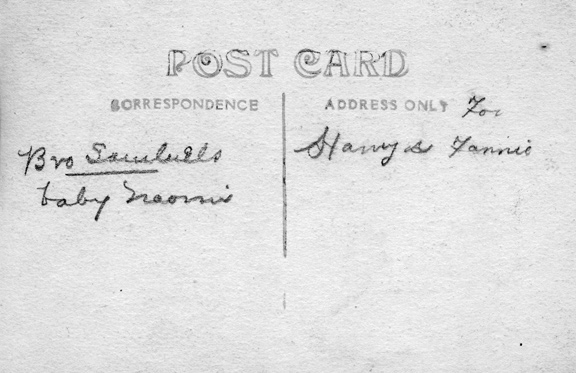 POST CARD
CORRESPONDENCE
ADDRESS ONLY
Bro Samuells
baby Naomi
For
Harry & Fannie